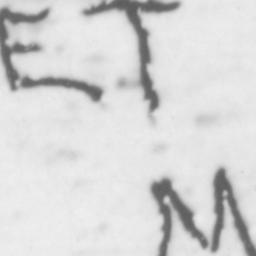 ET
M